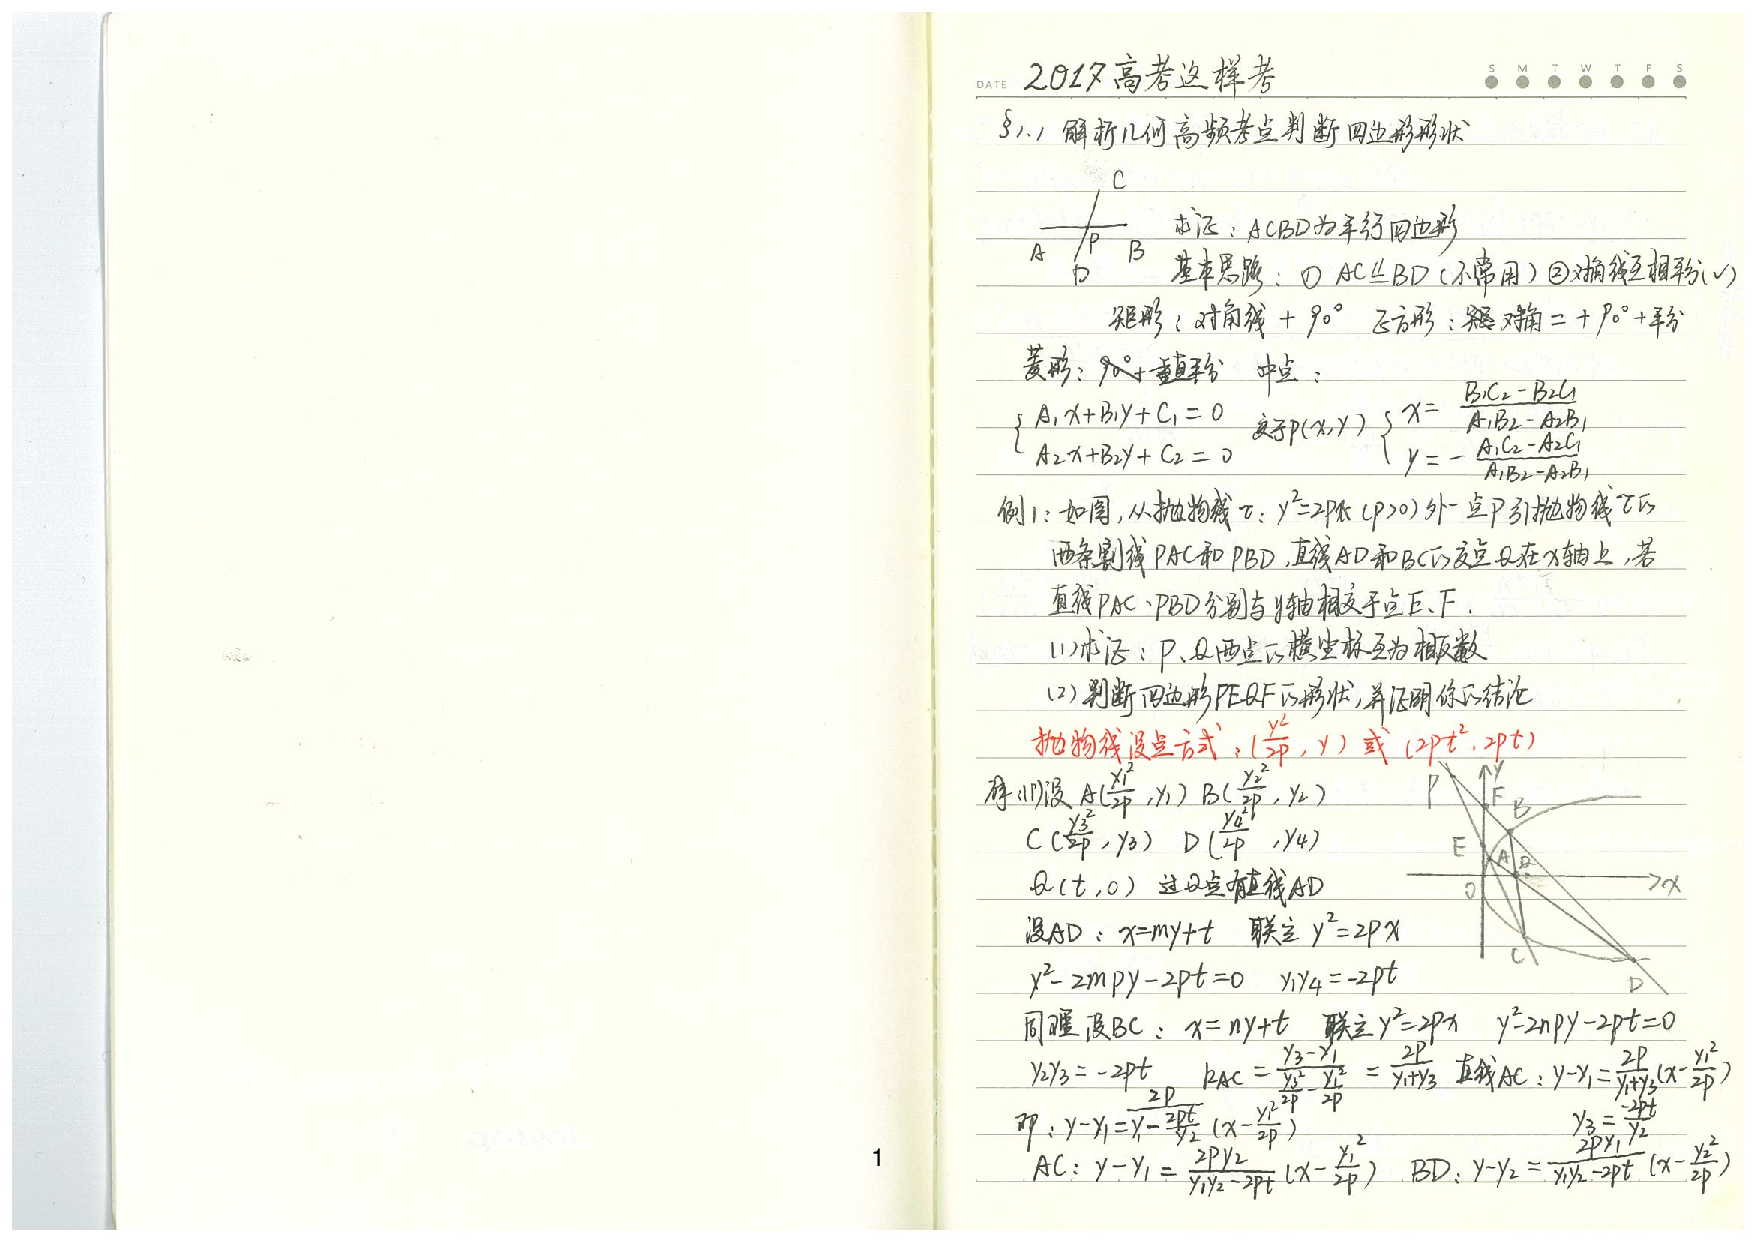 DATE 2017高考这样考 S M T W T F S
§1.1 解析几何高频考点判断四边形形状
C
A P B
D
求证：ACBD为平行四边形
基本思路：① AC⫽BD（不常用）②对角线互相平分(√)
矩形：对角线 + 90° 正方形： 对角 = + 90° + 平分
菱形：垂直平分 中点：
{ A₁x+B₁y+C₁=0 交于P(x,y) { x= (B₁C₂-B₂C₁)/(A₁B₂-A₂B₁)
A₂x+B₂y+C₂=0 y=-(A₁C₂-A₂C₁)/(A₁B₂-A₂B₁)
例1：如图，从抛物线τ：y²=2px（p>0）外一点P引抛物线τ的
两条割线PAC和PBD，直线AD和BC的交点Q在x轴上，若
直线PAC、PBD分别与y轴相交于点E、F．
(1)求证：P、Q两点的横坐标互为相反数
(2)判断四边形PEQF的形状，并证明你的结论
抛物线设点方式：(y²/2p , y) 或 (2pt², 2pt)
解：(1)设 A(y₁²/2p , y₁) B(y₂²/2p , y₂)
C(y₃²/2p , y₃) D(y₄²/2p , y₄)
Q(t,0) 过Q点有直线AD
设AD：x=my+t 联立 y²=2px
y²-2mpy-2pt=0 y₁y₄=-2pt
P y F B E A Q O x C D
同理设BC：x=ny+t 联立y²=2px y²-2npy-2pt=0
y₂y₃=-2pt kAC = (y₃-y₁)/(y₃²/2p - y₁²/2p) = 2p/(y₁+y₃) 直线AC：y-y₁=2p/(y₁+y₃)(x-y₁²/2p)
即：y-y₁=2p/(y₁-2pt/y₂)(x-y₁²/2p) y₃=-2pt/y₂
AC：y-y₁=2py₂/(y₁y₂-2pt)(x-y₁²/2p) BD：y-y₂=2py₁/(y₁y₂-2pt)(x-y₂²/2p)
1